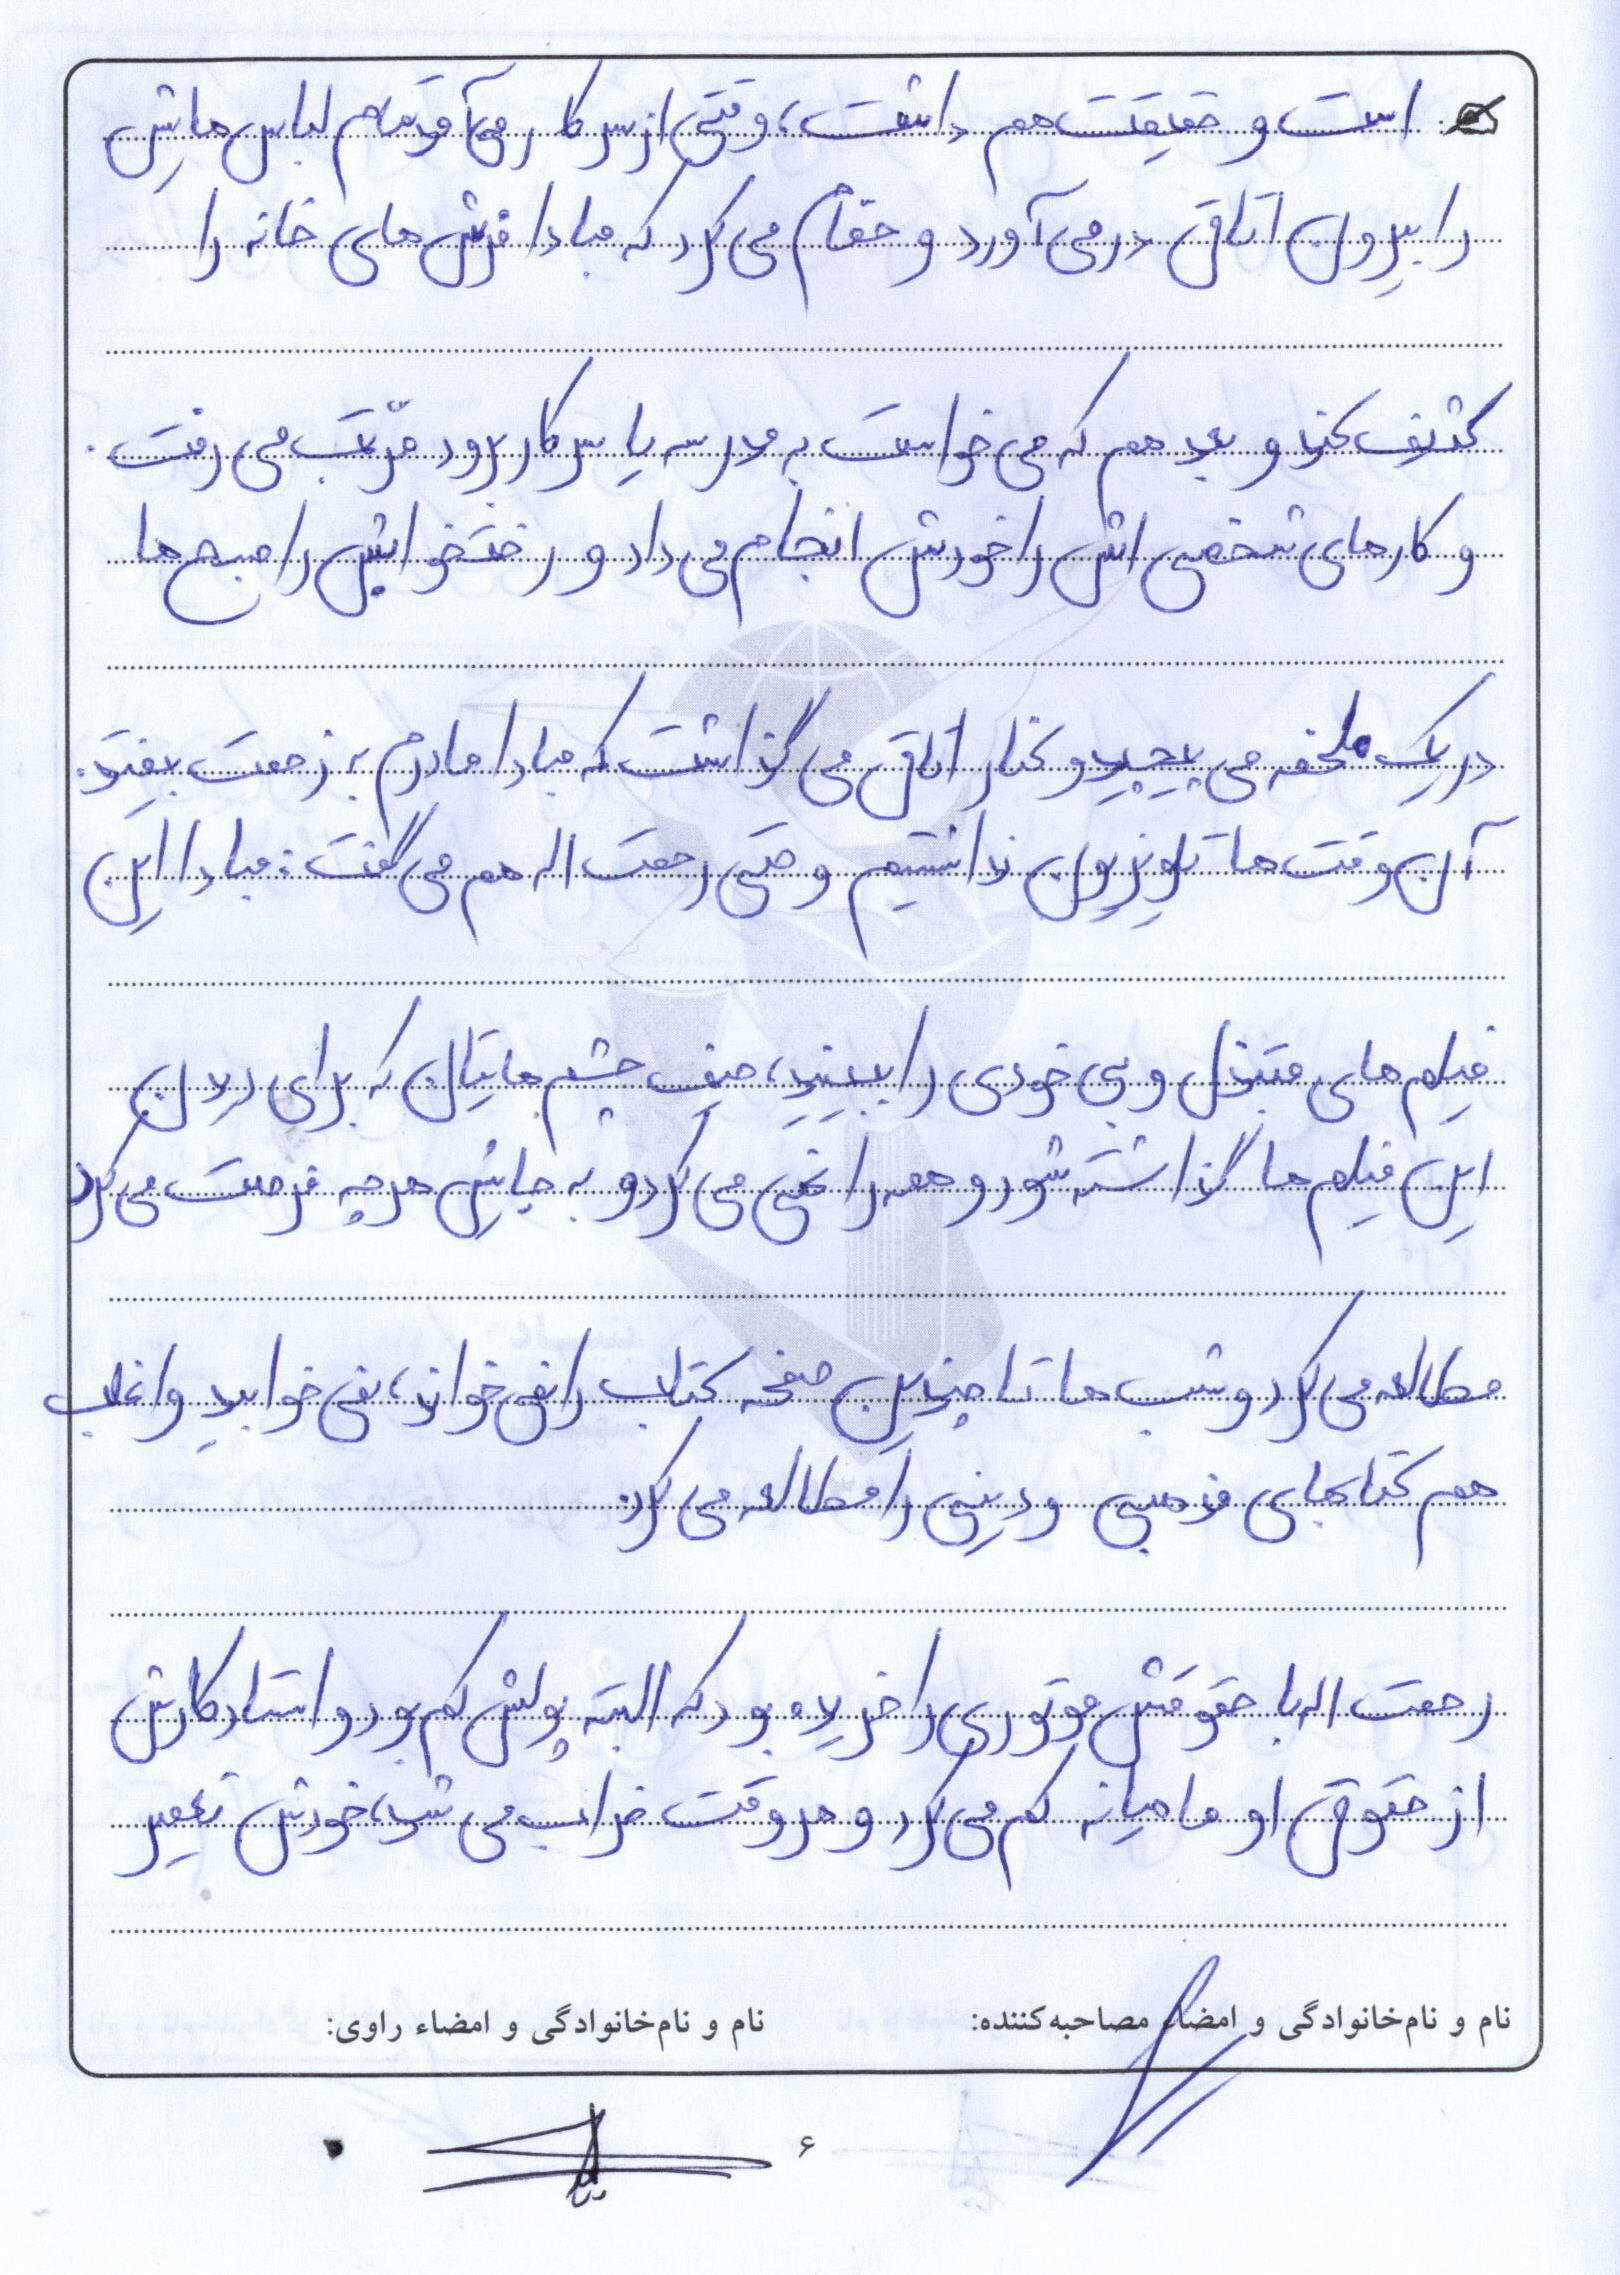 است و حقیقت هم داشت، وقتی از سر کار می‌آمد تمام لباس هایش
را بیرون اتاق در می آورد و حمام می کرد که مبادا فرش های خانه را
کثیف کند و بعد هم که می خواست به مدرسه یا سر کار برود مرتّب می رفت.
و کارهای شخصی اش را خودش انجام می داد و رختخوابش را صبح ها
در یک ملحفه می پیچید و کنار اتاق می گذاشت که مبادا مادرم به زحمت بیفتد.
آن وقت ها تلویزیون نداشتیم و حتی رحمت اله هم می گفت: مبادا این
فیلم های مبتذل و بی خودی را ببینید، حیف چشم هایتان که برای دیدن
این فیلم ها گذاشته شود و همه را نهی می کرد و به جایش هر چه فرصت می کرد
مطالعه می کرد و شب ها تا چندین صفحه کتاب را نمی خواند، نمی خوابید و اغلب
هم کتابهای مذهبی و دینی را مطالعه می کرد.
رحمت اله با حقوقش موتوری را خریده بود که البته پولش کم بود و استاد کارش
از حقوق او ماهیانه کم می کرد و هر وقت خراب می شد، خودش تعمیر
نام و نام‌خانوادگی و امضاء مصاحبه‌کننده: نام و نام‌خانوادگی و امضاء راوی:
۶